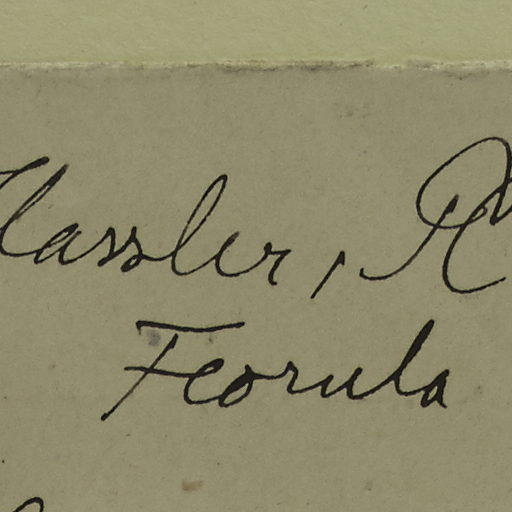 Hassler, R
Feorula